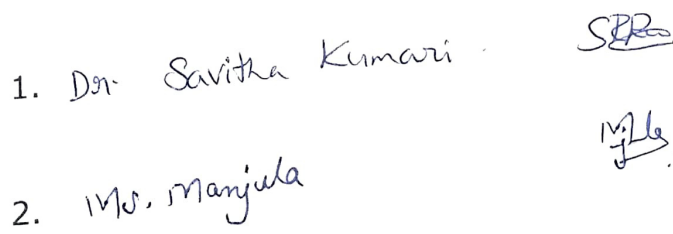 1. Dr. Savitha Kumari
2. Ms. Manjula